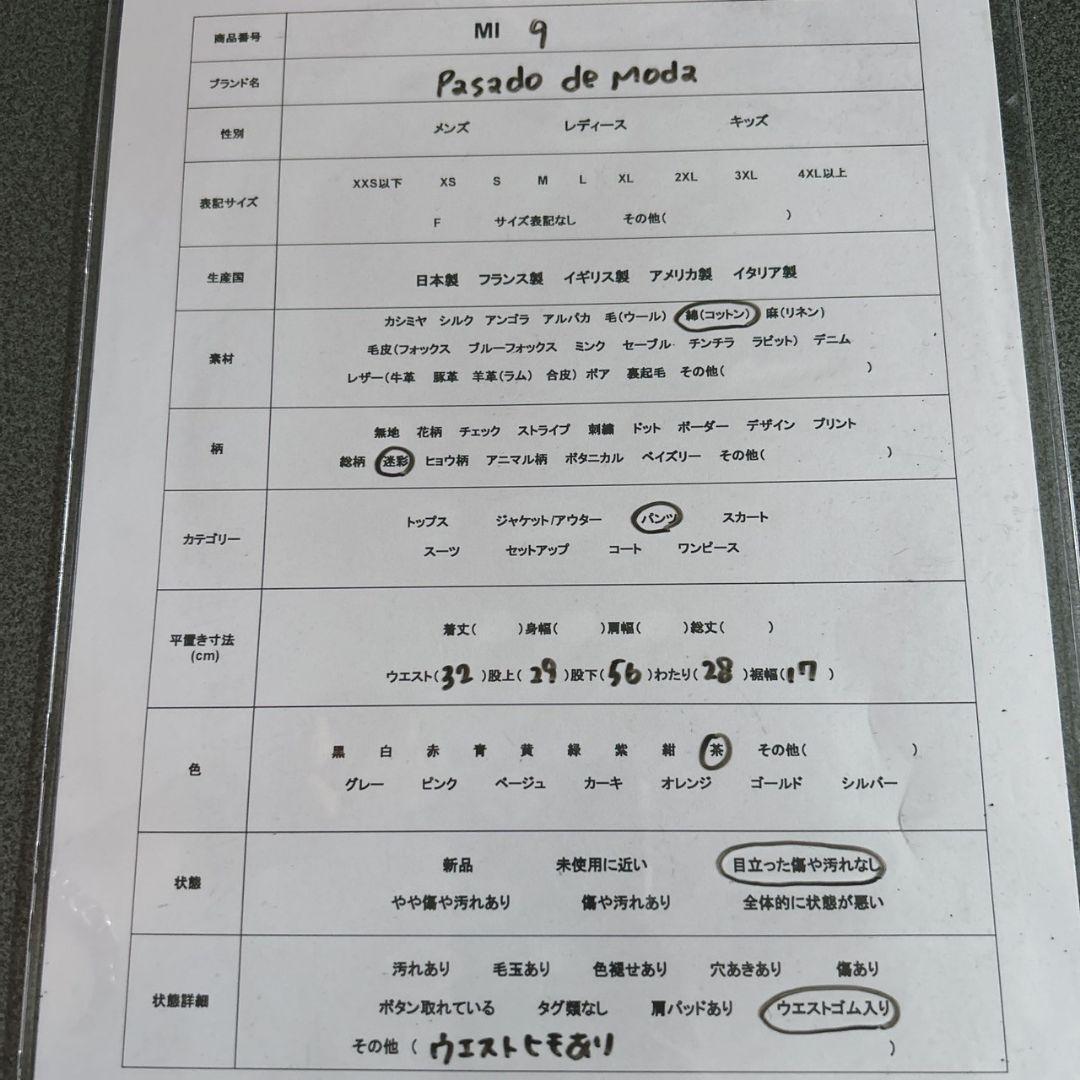 商品番号 MI 9
ブランド名 Pasado de Moda
性別 メンズ レディース キッズ
表記サイズ XXS以下 XS S M L XL 2XL 3XL 4XL以上
F サイズ表記なし その他( )
生産国 日本製 フランス製 イギリス製 アメリカ製 イタリア製
素材 カシミヤ シルク アンゴラ アルパカ 毛(ウール) 綿(コットン) 麻(リネン)
毛皮(フォックス ブルーフォックス ミンク セーブル チンチラ ラビット) デニム
レザー(牛革 豚革 羊革(ラム) 合皮) ボア 裏起毛 その他( )
柄 無地 花柄 チェック ストライプ 刺繍 ドット ボーダー デザイン プリント
総柄 迷彩 ヒョウ柄 アニマル柄 ボタニカル ペイズリー その他( )
カテゴリー トップス ジャケット/アウター パンツ スカート
スーツ セットアップ コート ワンピース
平置き寸法 (cm) 着丈( )身幅( )肩幅( )総丈( )
ウエスト(32)股上(29)股下(56)わたり(28)裾幅(17)
色 黒 白 赤 青 黄 緑 紫 紺 茶 その他( )
グレー ピンク ベージュ カーキ オレンジ ゴールド シルバー
状態 新品 未使用に近い 目立った傷や汚れなし
やや傷や汚れあり 傷や汚れあり 全体的に状態が悪い
状態詳細 汚れあり 毛玉あり 色褪せあり 穴あきあり 傷あり
ボタン取れている タグ類なし 肩パッドあり ウエストゴム入り
その他 (ウエストヒモあり)